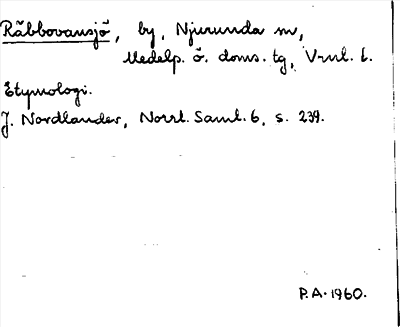 Råbbovansjö, by, Njurunda sn,
Medelp. ö. doms. tg, Vrnl. l.
Etymologi.
J. Nordlander, Norrl. Saml. 6, s. 239.
P.A. 1960.